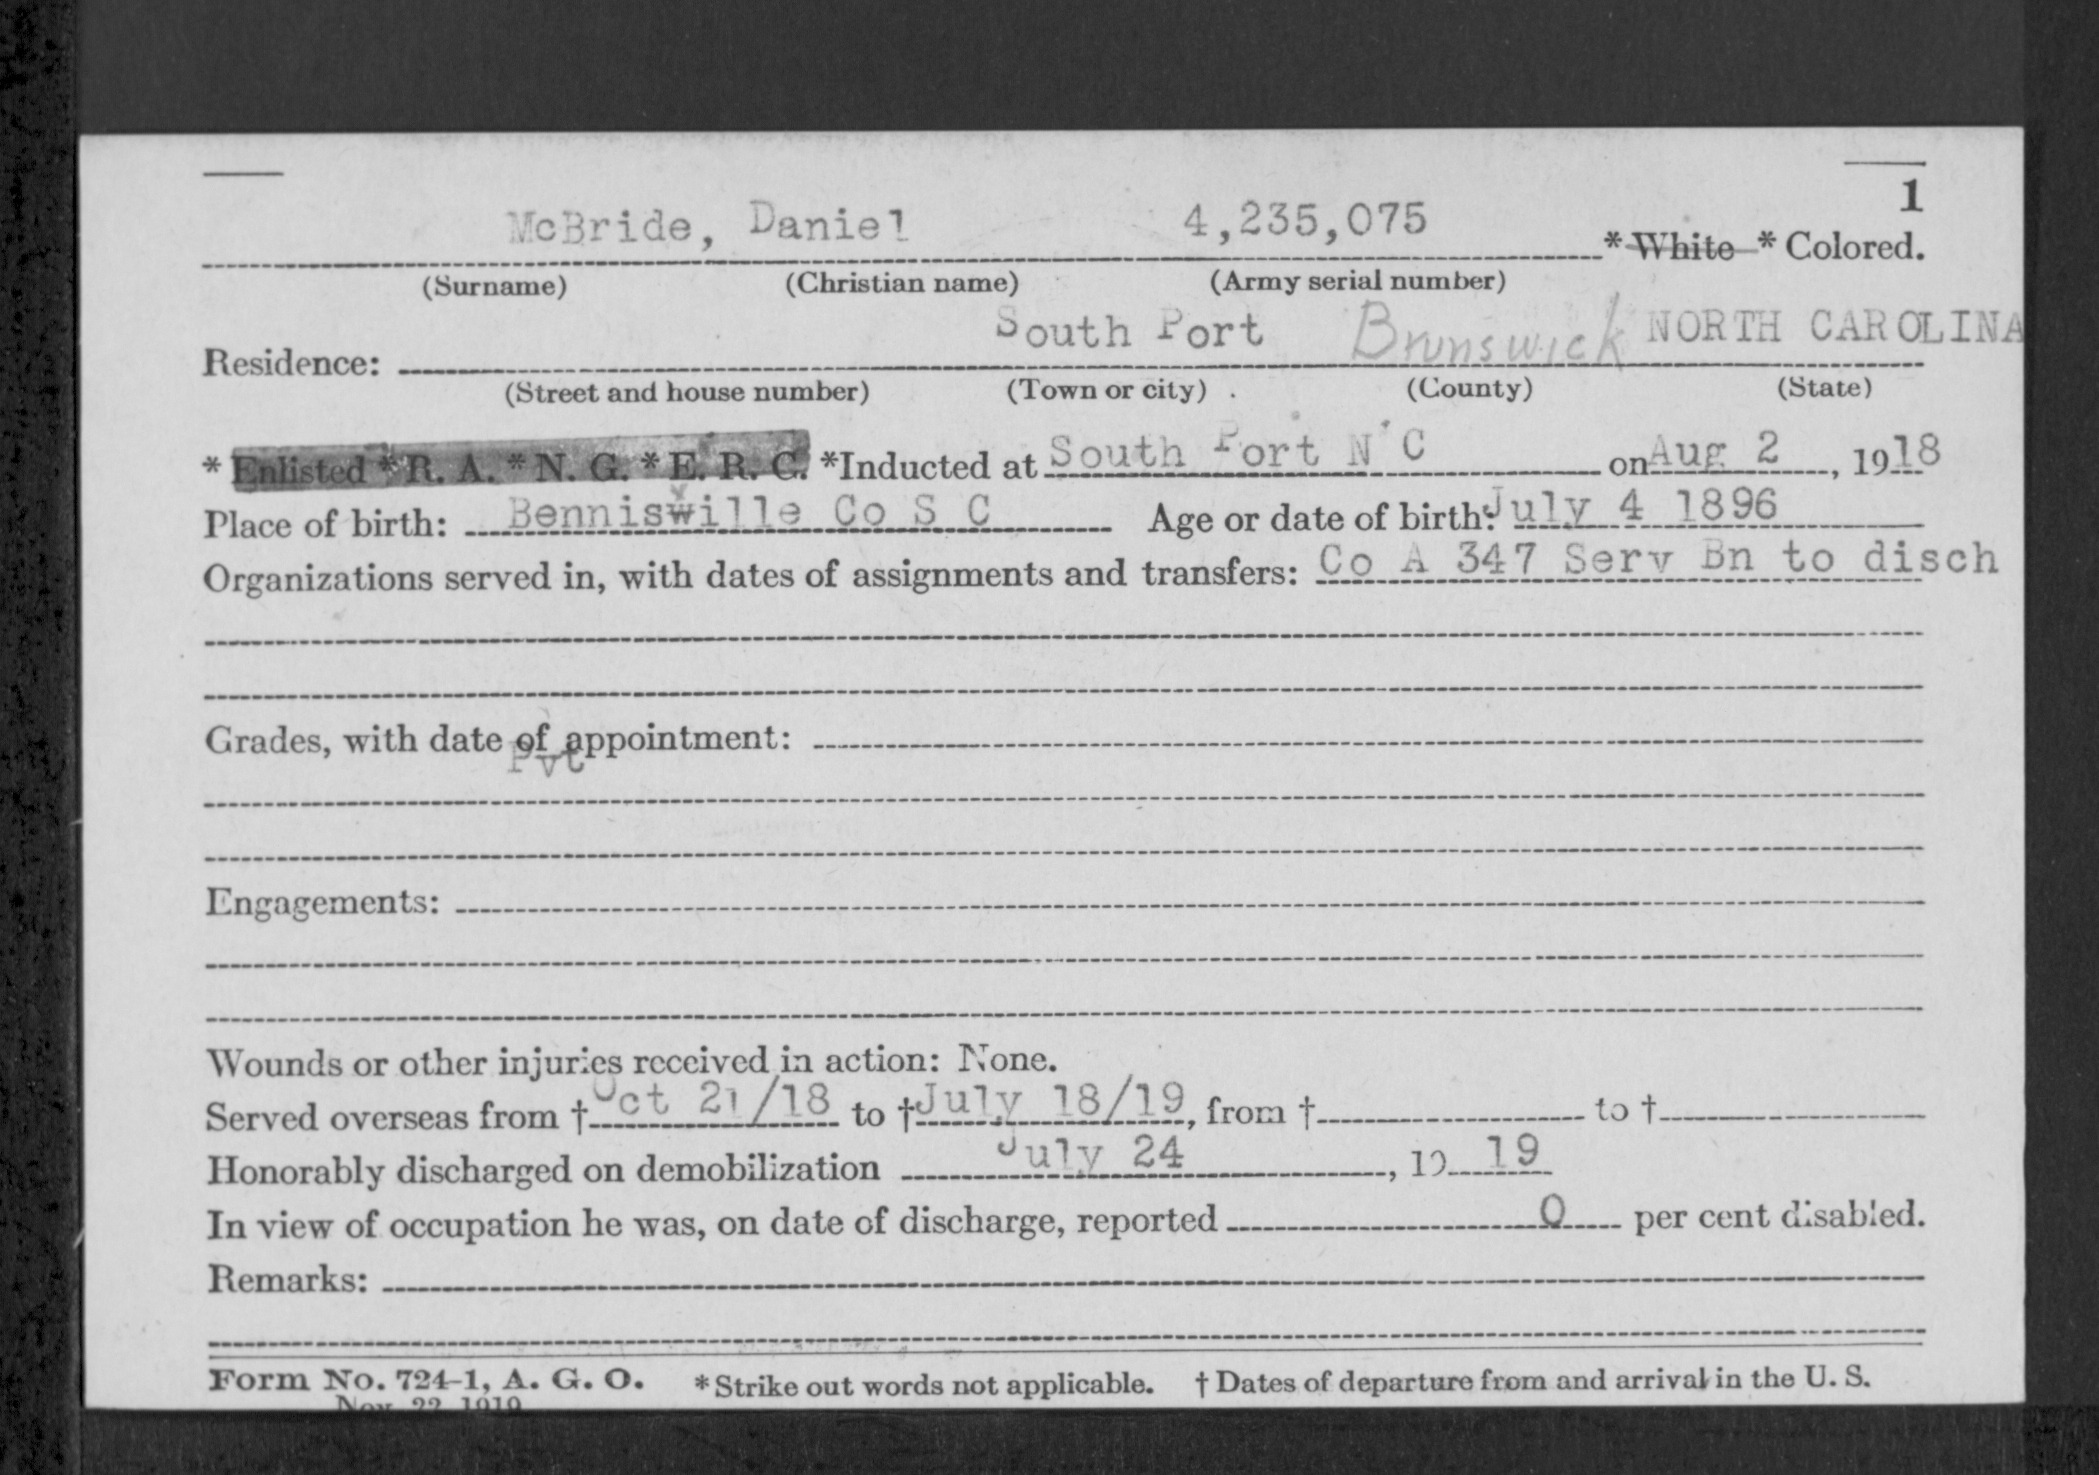 1
McBride, Daniel 4,235,075 * White * Colored.
(Surname) (Christian name) (Army serial number)
Residence: South Port Brunswick NORTH CAROLINA
(Street and house number) (Town or city) (County) (State)
* Enlisted * R. A. * N. G. * E. R. C. *Inducted at South Port N C on Aug 2, 1918
Place of birth: Benniswille Co S C Age or date of birth: July 4 1896
Organizations served in, with dates of assignments and transfers: Co A 347 Serv Bn to disch
Grades, with date of appointment:
Pvt
Engagements:
Wounds or other injuries received in action: None.
Served overseas from † Oct 21/18 to † July 18/19, from † to †
Honorably discharged on demobilization July 24, 19 19
In view of occupation he was, on date of discharge, reported 0 per cent disabled.
Remarks:
Form No. 724-1, A. G. O. * Strike out words not applicable. † Dates of departure from and arrival in the U. S.
Nov. 22, 1919